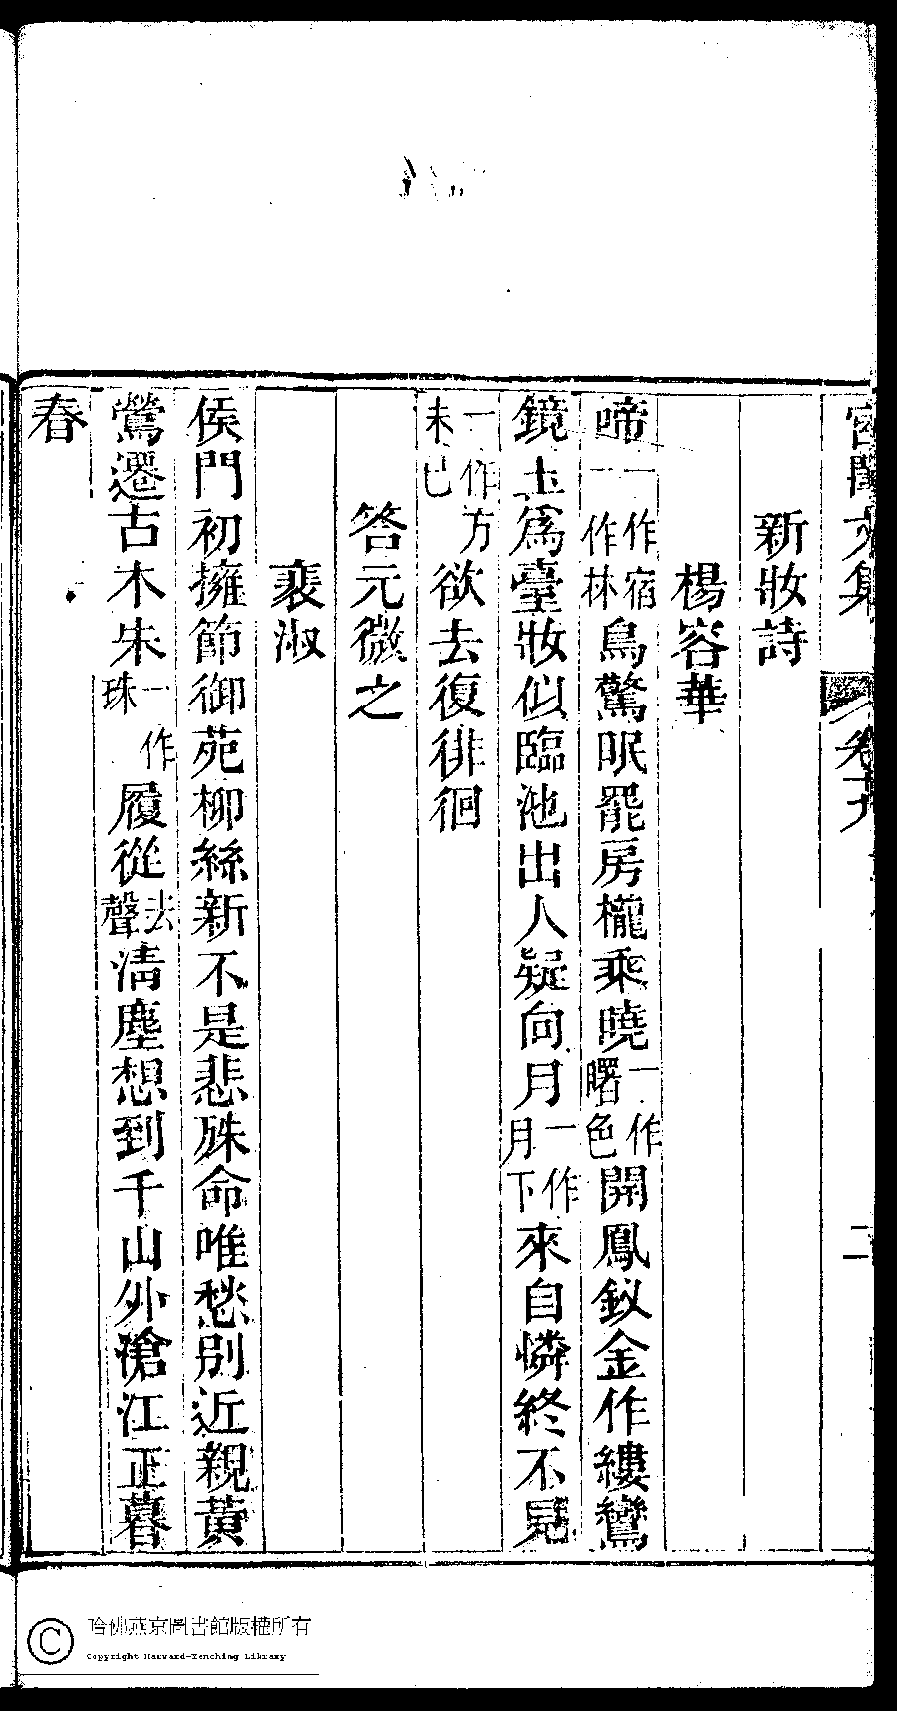 宮閨文集 卷十九 二
新妝詩
楊容華
啼一作宿一作林鳥驚眠罷房櫳乘曉一作曙色開鳳釵金作縷鸞
鏡玉爲臺妝似臨池出人疑向月一作月下來自憐終不見
一作方未已欲去復徘徊
答元微之
裴淑
侯門初擁節御苑柳絲新不是悲殊命唯愁別近親黃
鶯遷古木朱一作珠履從去聲清塵想到千山外滄江正暮
春
哈佛燕京圖書館版權所有
Copyright Harvard-Yenching Library